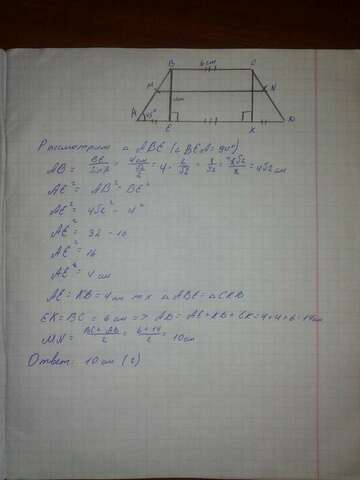 B 6 см C
M N
4см
A 45° E K D
Рассмотрим △ ABE (∠BEA=90°)
AB = BE/SinA = 4см/(√2/2) = 4 · 2/√2 = 8/√2 = 8√2/2 = 4√2 см
AE² = AB² - BE²
AE² = 4√2² - 4²
AE² = 32 - 16
AE² = 16
AE² = 4 см
AE = KD = 4 см т.к △ABE = △CKD
EK = BC = 6 см => AD = AE + KD + EK = 4 + 4 + 6 = 14см
MN = (BC + AD)/2 = (6 + 14)/2 = 10см
Ответ: 10 см (2)